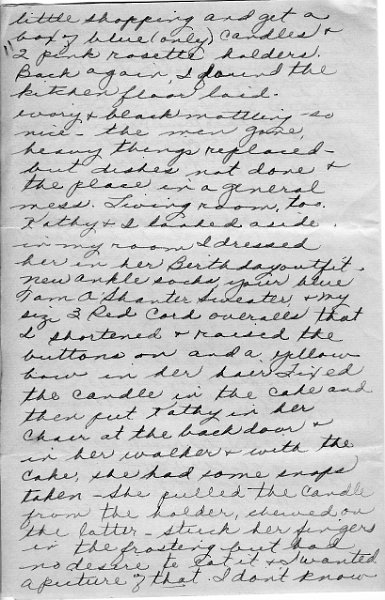 little shopping and get a
box of blue (only) candles &
2 pink rosette holders.
Back again, I found the
kitchen floor laid.
ivory & black mottling - so
nice - the men gone,
heavy things replaced -
but dishes not done &
the place in a general
mess. Living room, too.
Kathy & I looked aside.
in my room I dressed
her in her Birthday outfit.
new ankle socks, your blue
Tam O Shanter Sweater, & my
size 3 Red Cord overalls that
I shortened & raised the
buttons on and a yellow
bow in her hair. Fixed
the candle in the cake and
then put Kathy in her
chair at the back door &
in her walker & with the
cake, she had some snaps
taken - She pulled the candle
from the holder, chewed on
the latter - stuck her fingers
in the frosting but had
no desire to eat it & I wanted
a picture of that. I don't know